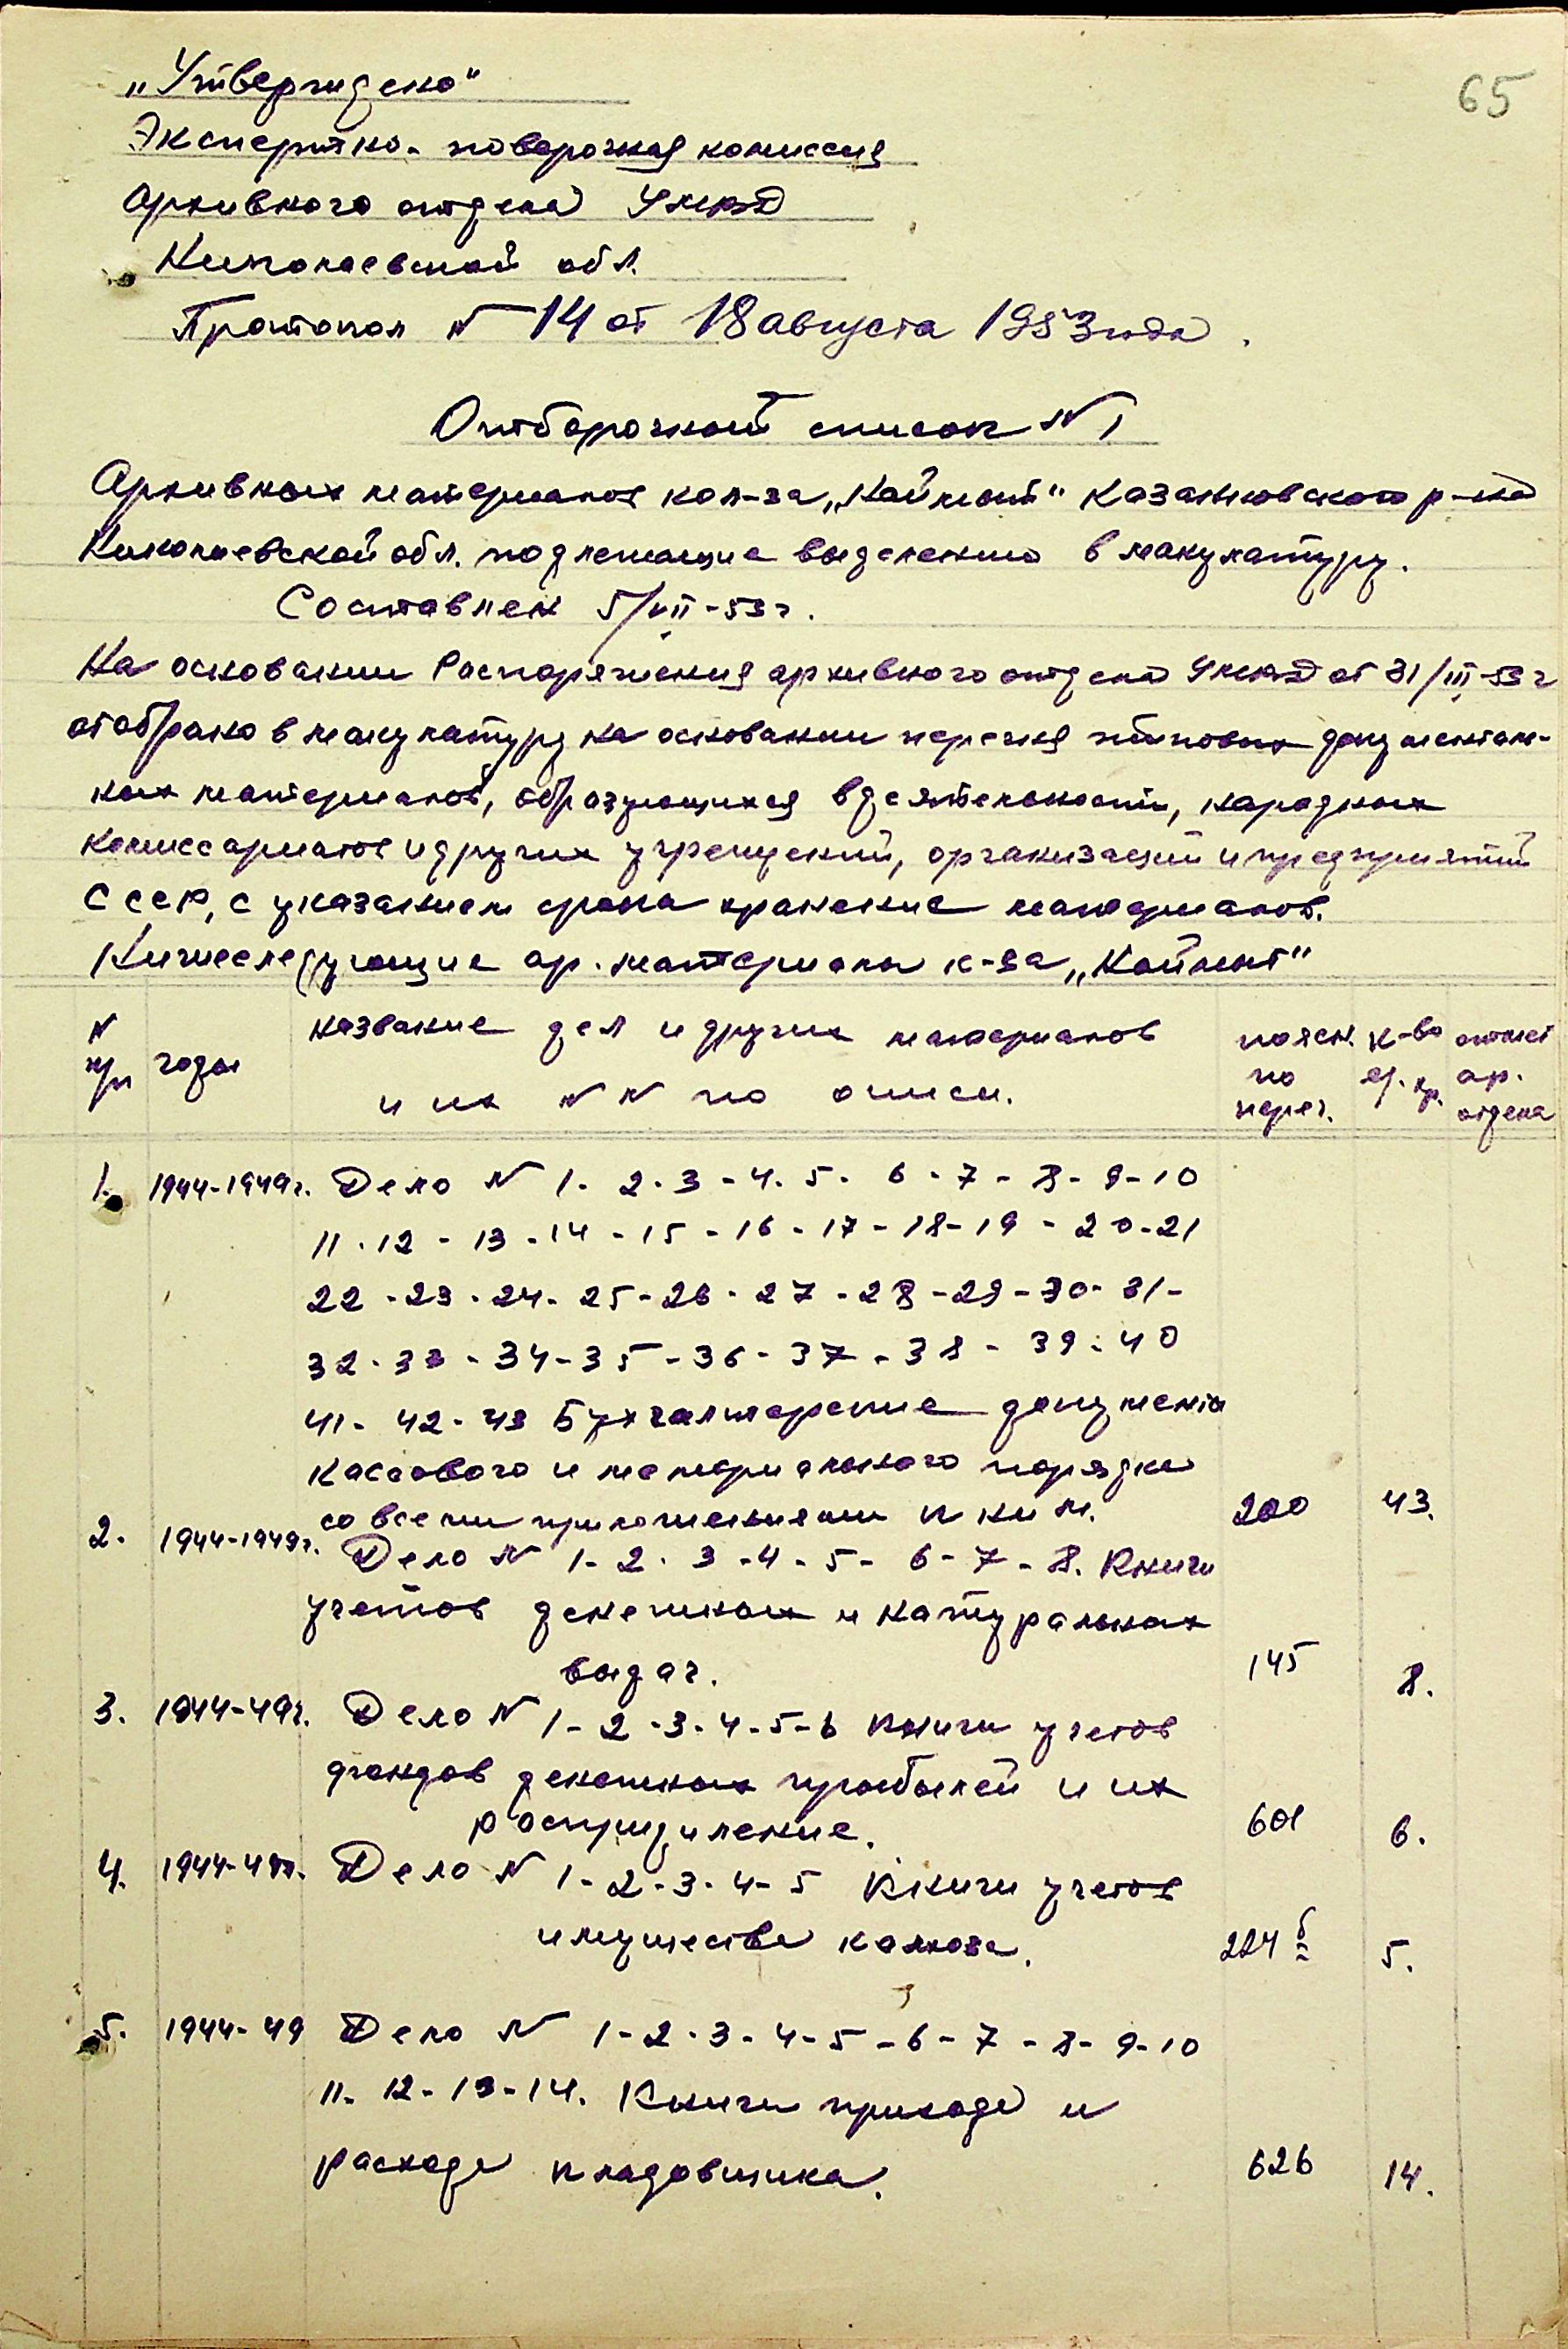 65
„Утверждено“
Экспертно-поверочная комиссия
Архивного отдела УМВД
Николаевской обл.
Протокол № 14 от 18 августа 1953 года.
Отборочный список № 1
Архивных материалов кол-за „Наймыт“ Казанковского р-на
Николаевской обл. подлежащие выделению в макулатуру.
Составлен 5/VII-53 г.
На основании Распоряжения архивного отдела УМВД от 31/III-53 г
отобрано в макулатуру на основании перечня типовых документаль-
ных материалов, образующихся в деятельности, народных
комиссариатов и других учреждений, организаций и предприятий
СССР, с указанием срока хранение материалов.
Нижеследующие ар. материалы к-за „Наймыт“
№ п/п годы название дел и других материалов и их №№ по описи. поясн. по переч. к-во ед. хр. отмет ар. отдела
1. 1944-1949г. Дело № 1-2-3-4-5-6-7-8-9-10
11-12-13-14-15-16-17-18-19-20-21
22-23-24-25-26-27-28-29-30-31-
32-33-34-35-36-37-38-39-40
41-42-43 Бухгалтерские документы
кассового и материального порядка
со всеми приложениями к ним. 200 43.
2. 1944-1949г. Дело № 1-2-3-4-5-6-7-8. Книги
учетов денежных и натуральных
выдач. 145 8.
3. 1944-49г. Дело № 1-2-3-4-5-6 Книги учетов
фондов денежных прибылей и их
распридиление. 601 6.
4. 1944-49г. Дело № 1-2-3-4-5 Книги учетов
имущества колхоза. 224 б 5.
5. 1944-49 Дело № 1-2-3-4-5-6-7-8-9-10
11-12-13-14. Книги прихода и
расхода кладовщика. 626 14.